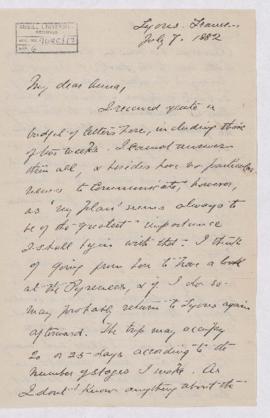 McGILL UNIVERSITY
ARCHIVES
ACC. NO.
REF. 6
Lyons, France.
July 7. 1882
My dear Anna,
I received quite a
budget of letters here, including those
of two weeks. I cannot answer
them all, & besides have no particular
news to communicate, however,
as "my plan" seems always to
be of the greatest importance
I shall begin with that - I think
of going from here to have a look
at the Pyrenees, & if I do so
may probably return to Lyons again
afterward. The trip may occupy
20 or 25 days according to the
number of stages I make. As
I don't know anything about the